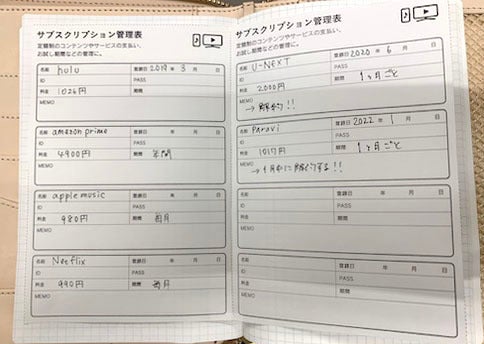 サブスクリプション管理表
定額制のコンテンツやサービスの支払い、
お試し期間などの管理に。
名前 hulu 登録日 2019年 3月 日
ID PASS
料金 1026円 期間
MEMO
名前 amazon prime 登録日 年 月 日
ID PASS
料金 4900円 期間 年間
MEMO
名前 apple music 登録日 年 月 日
ID PASS
料金 980円 期間 毎月
MEMO
名前 Netflix 登録日 年 月 日
ID PASS
料金 990円 期間 毎月
MEMO
サブスクリプション管理表
定額制のコンテンツやサービスの支払い、
お試し期間などの管理に。
名前 U-NEXT 登録日 2020年 6月 日
ID PASS
料金 2000円 期間 1ヶ月ごと
MEMO →解約!!
名前 Paravi 登録日 2022年 1月 日
ID PASS
料金 1017円 期間 1ヶ月ごと
MEMO →1月中に解約する!!
名前 登録日 年 月 日
ID PASS
料金 期間
MEMO
名前 登録日 年 月 日
ID PASS
料金 期間
MEMO